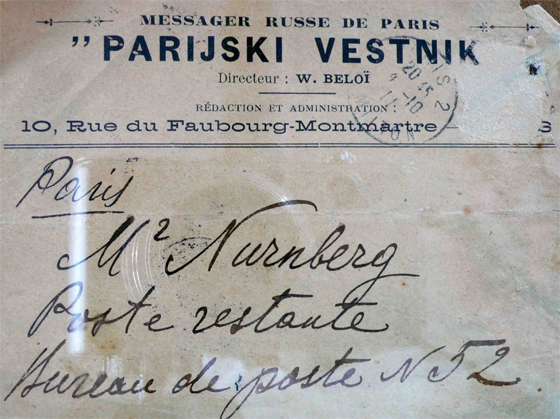 MESSAGER RUSSE DE PARIS
"PARIJSKI VESTNIK
Directeur : W. BELOÏ
RÉDACTION ET ADMINISTRATION :
10, Rue du Faubourg-Montmartre — S
Paris
Mr Nurnberg
Poste restante
Bureau de poste N 52.